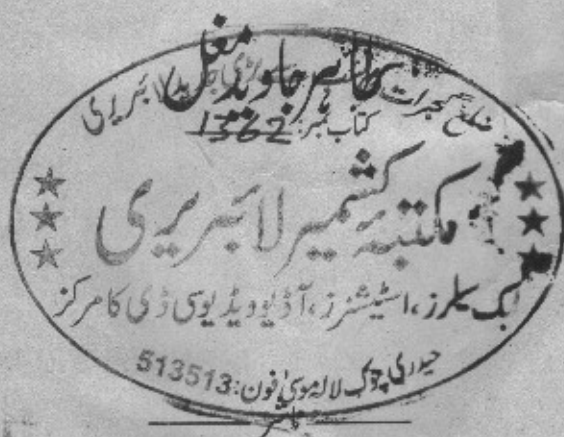 طاہر جاوید مغل
ضلع گجرات
لائبریری
کتاب نمبر: 1362
مکتبہ کشمیر لائبریری
بک سیلرز، اسٹیشنرز، آڈیو ویڈیو سی ڈی کا مرکز
حیدری چوک لالہ موسیٰ فون: 513513
ناشر